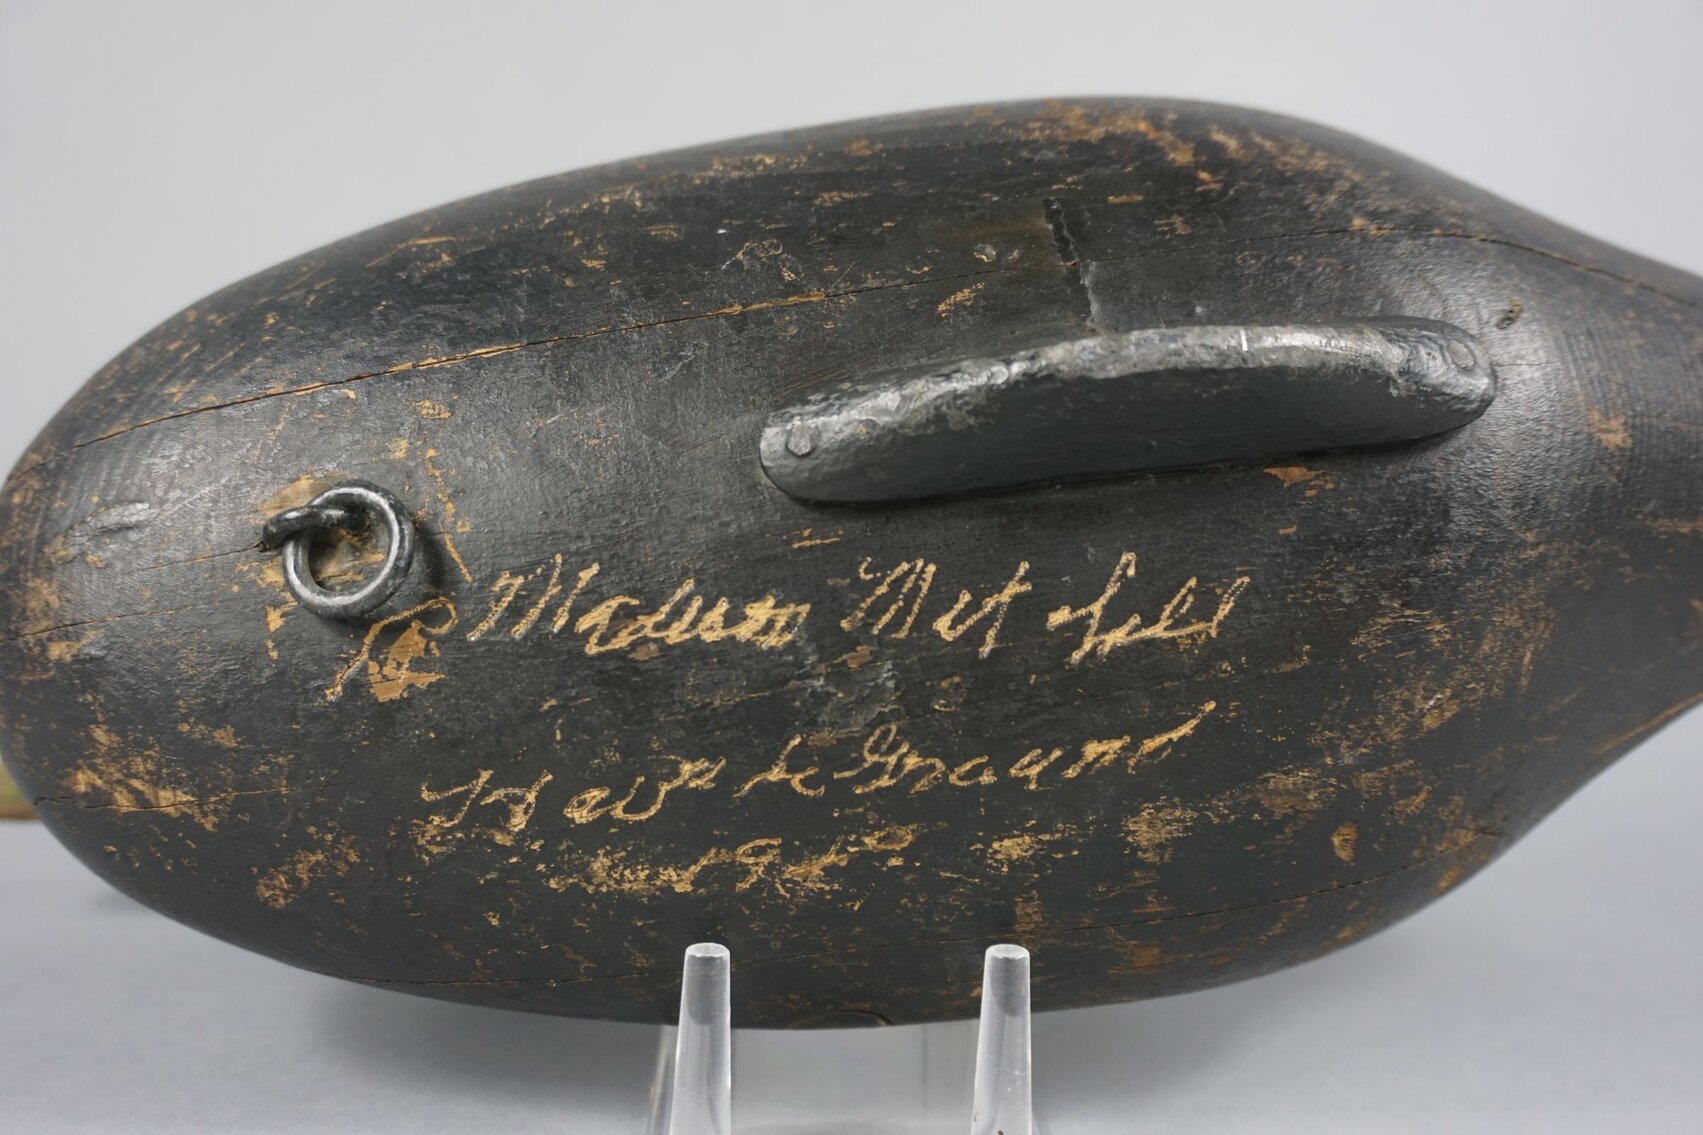 R Madison Mitchell
Havre de Grace Md